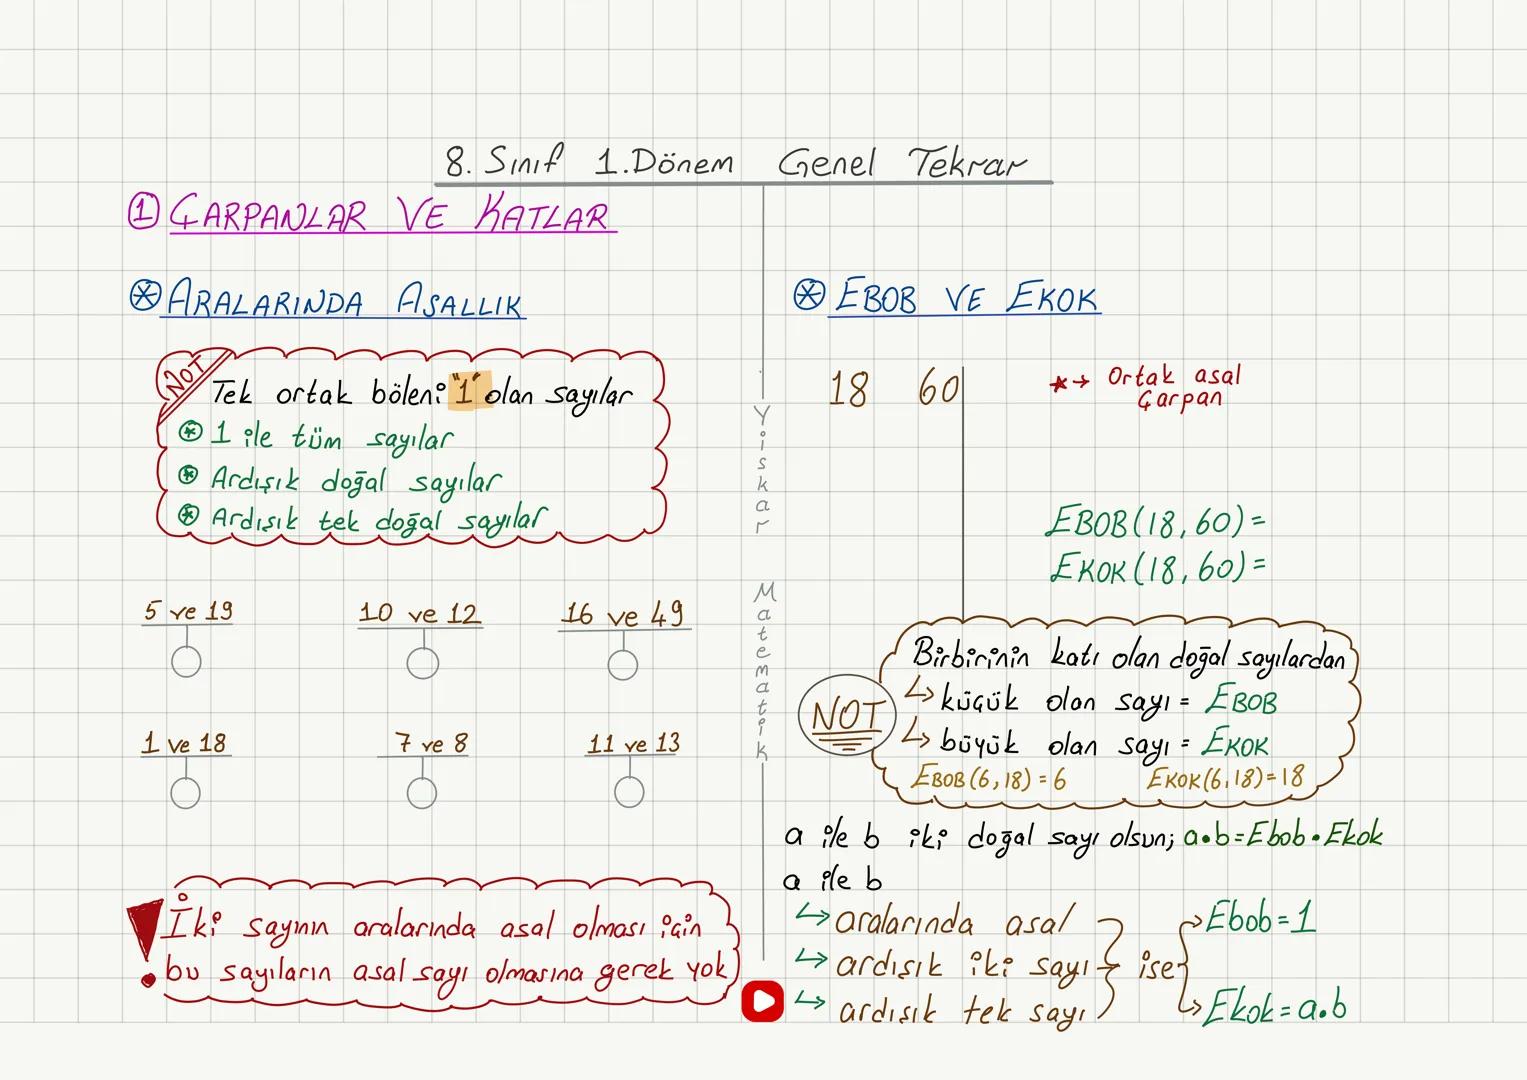 8. Sınıf 1.Dönem Genel Tekrar
1 ÇARPANLAR VE KATLAR
* ARALARINDA ASALLIK
NOT
Tek ortak böleni "1" olan sayılar
* 1 ile tüm sayılar
* Ardışık doğal sayılar
* Ardışık tek doğal sayılar
5 ve 19 10 ve 12 16 ve 49
1 ve 18 7 ve 8 11 ve 13
! İki sayının aralarında asal olması için
bu sayıların asal sayı olmasına gerek yok
Yiskar Matematik
* EBOB VE EKOK
18 60
*→ Ortak asal
Çarpan
EBOB(18,60)=
EKOK(18,60)=
NOT
Birbirinin katı olan doğal sayılardan
↳ küçük olan sayı = EBOB
↳ büyük olan sayı = EKOK
EBOB(6,18)=6 EKOK(6,18)=18
a ile b iki doğal sayı olsun; a•b=Ebob•Ekok
a ile b
↳ aralarında asal
↳ ardışık iki sayı
↳ ardışık tek sayı
ise
Ebob=1
Ekok=a.b